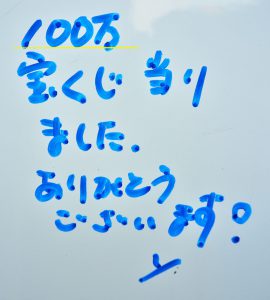 100万
宝くじ当り
ました.
ありがとう
ございます!